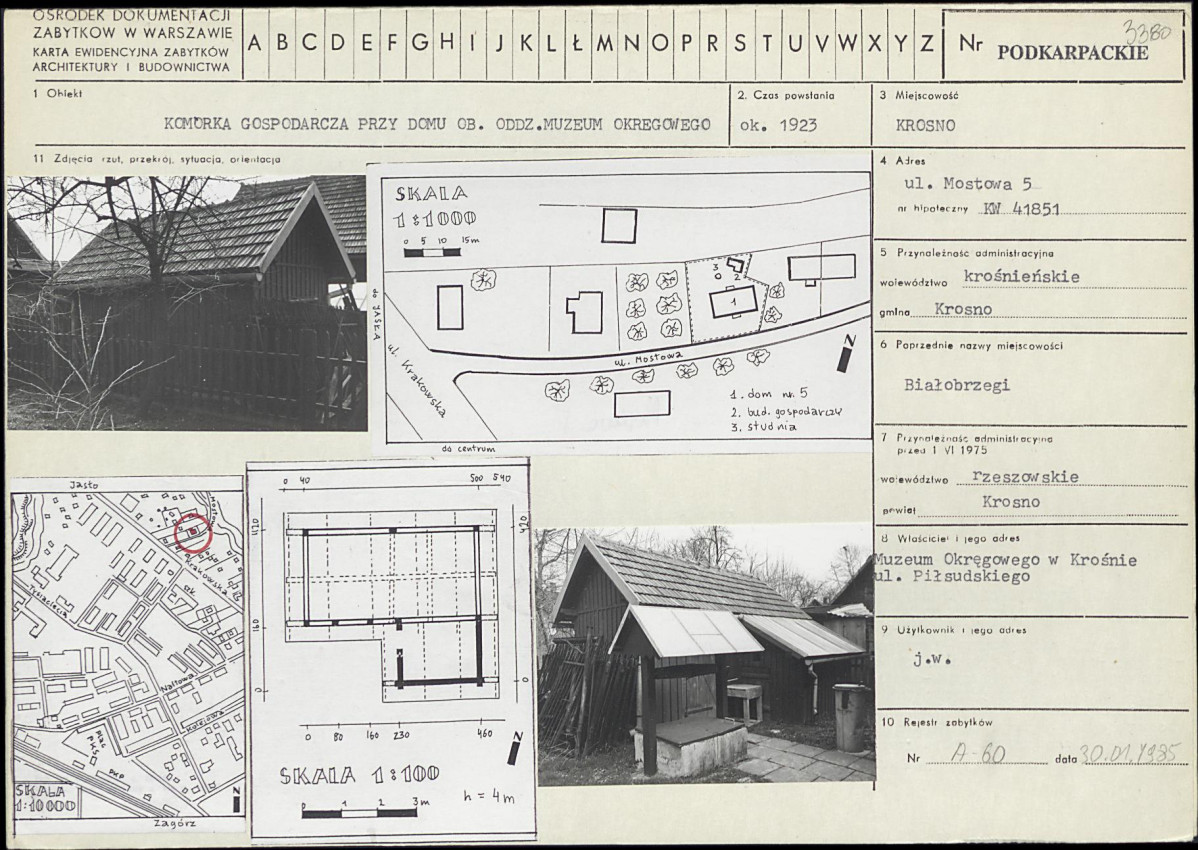 OŚRODEK DOKUMENTACJI
ZABYTKÓW W WARSZAWIE
KARTA EWIDENCYJNA ZABYTKÓW
ARCHITEKTURY I BUDOWNICTWA
A B C D E F G H I J K L Ł M N O P R S T U V W X Y Z
Nr PODKARPACKIE
3380
1 Obiekt
KOMÓRKA GOSPODARCZA PRZY DOMU OB. ODDZ.MUZEUM OKRĘGOWEGO
2. Czas powstania
ok. 1923
3 Miejscowość
KROSNO
11 Zdjęcia rzut, przekrój, sytuacja, orientacja
4 Adres
ul. Mostowa 5
nr hipoteczny KW 41851
5 Przynależność administracyjna
województwo krośnieńskie
gmina Krosno
6 Poprzednie nazwy miejscowości
Białobrzegi
7 Przynależność administracyjna
przed 1 VI 1975
województwo rzeszowskie
powiat Krosno
8 Właściciel i jego adres
Muzeum Okręgowego w Krośnie
ul. Piłsudskiego
9 Użytkownik i jego adres
j.w.
10 Rejestr zabytków
Nr A-60 data 30.01.1985
SKALA
1:1000
0 5 10 15m
do JASŁA
ul. Krakowska
ul. Mostowa
1
2
3
N
1. dom nr. 5
2. bud. gospodarczy
3. studnia
do centrum
Jasło
Mostowa
Krakowska
Tysiąclecia
Naftowa
Kolejowa
Plac
PKS
PKP
SKALA
1:10000
N
Zagórz
0 40 500 540
420
160
0
420
0
0 80 160 230 460
SKALA 1:100
0 1 2 3m
h = 4m
N